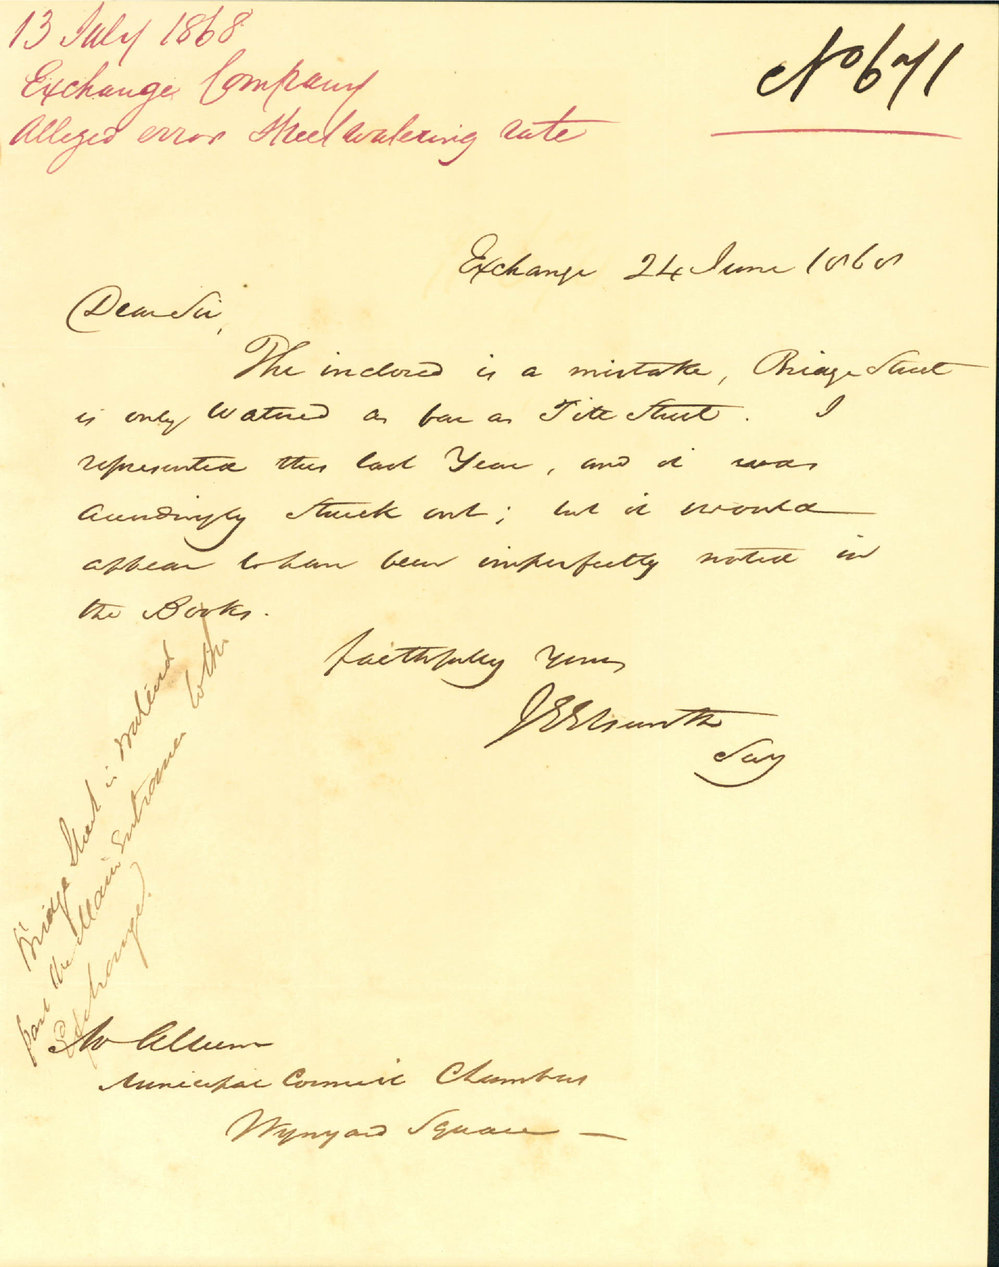 13 July 1868
Exchange Company
Alleged error Street watering rate
No 671
Exchange 24 June 1868
Dear Sir,
The inclosed is a mistake, Bridge Street
is only watered as far as Pitt Street. I
represented this last Year, and it was
accordingly struck out; but it would
appear to have been imperfectly noted in
the Books.
Faithfully Yours
Secy
Bridge Street is watered
past the Main Entrance to the
Exchange.
Municipal Council Chambers
Wynyard Square —